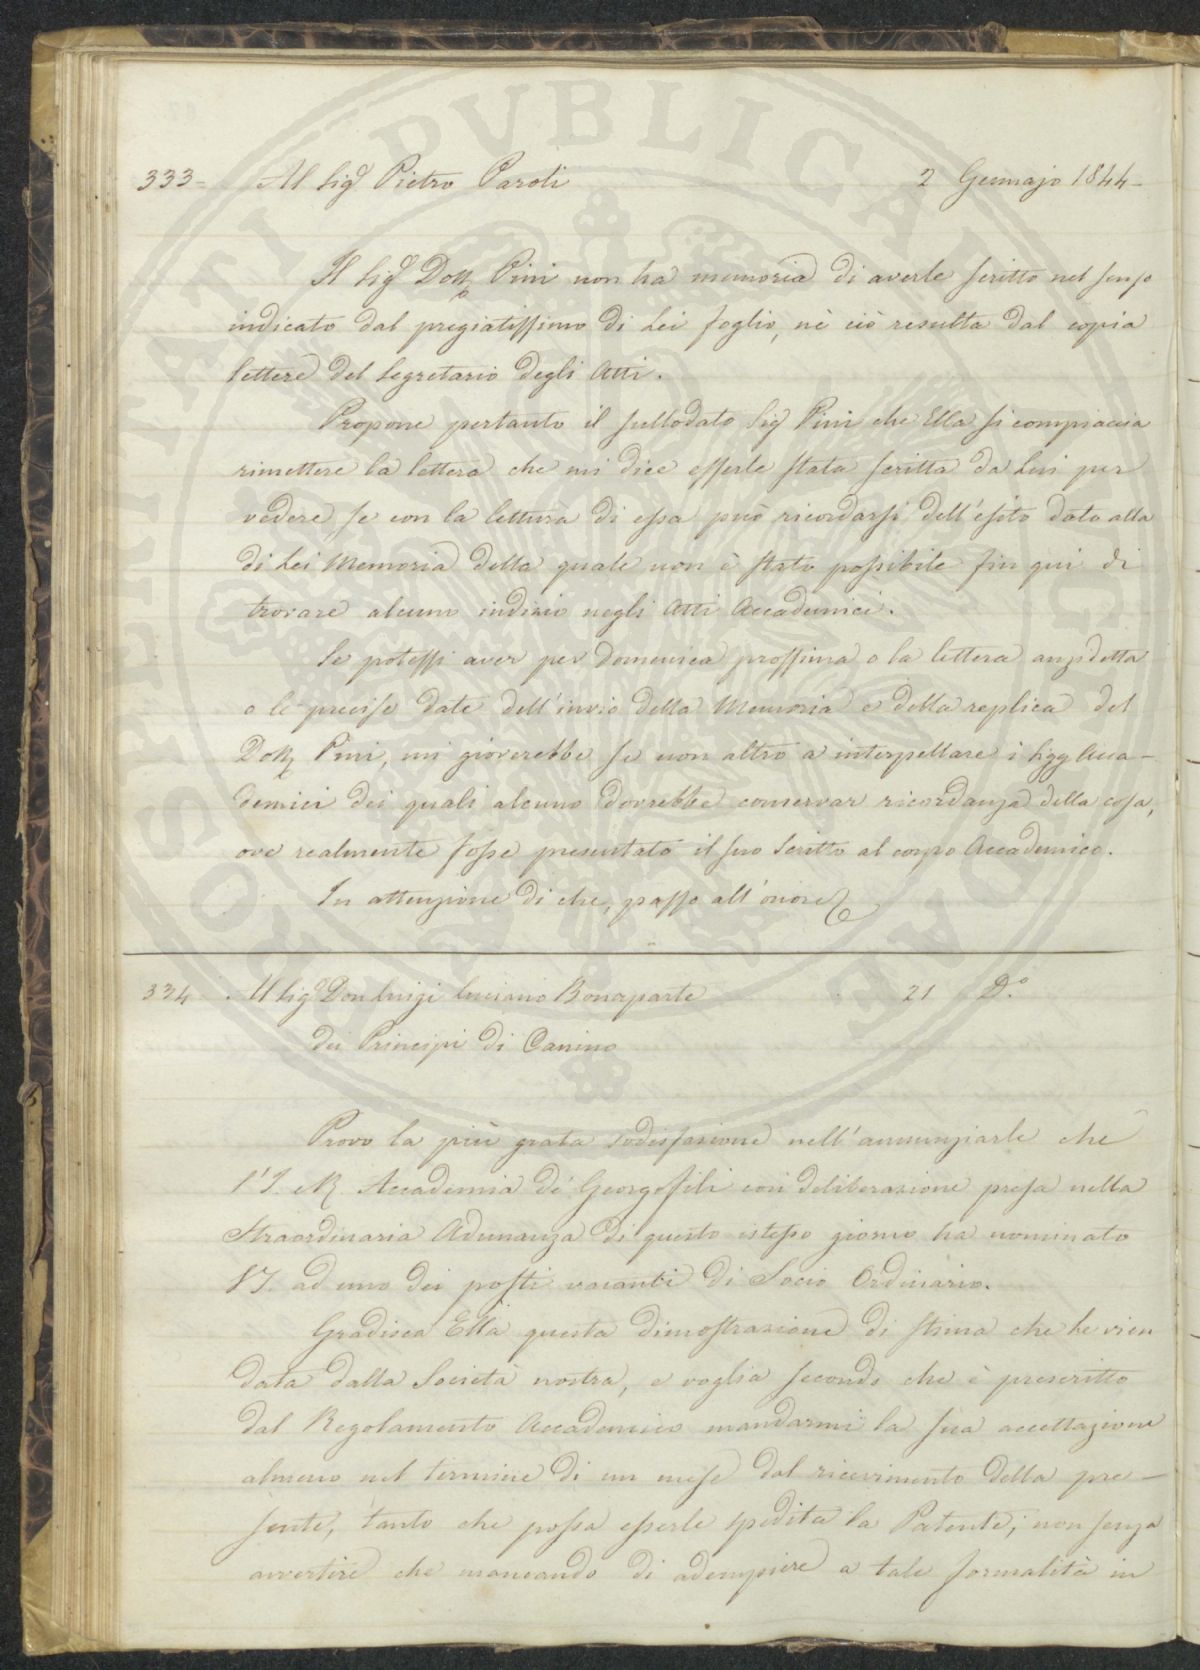 333= Al Sig.r Pietro Paroli 2 Gennajo 1844-
Il Sig.r Dott. Pini non ha memoria di averle scritto nel senso
indicato dal pregiatissimo di Lei foglio, nè ciò resulta dal copia
lettere del Segretario degli Atti.
Propone pertanto il sullodato Sig. Pini che Ella si compiaccia
rimettere la lettera che mi dice esserle stata scritta da Lui per
vedere se con la lettura di essa può ricordarsi dell'esito dato alla
di Lei Memoria della quale non è stato possibile fin qui di
trovare alcuno indizio negli Atti Accademici.
Se potessi aver per Domenica prossima o la lettera anzidetta
o le precise date dell'invio della Memoria e della replica del
Dott. Pini, mi gioverebbe se non altro a interpellare i Sigg. Acca-
demici dei quali alcuno dovrebbe conservar ricordanza della cosa,
ove realmente fosse presentato il suo Scritto al corpo Accademico.
In attenzione di che, passo all'onore &
334 Al Sig.r Don Luigi Luciano Bonaparte 21 D.o
dei Principi di Canino
Provo la più grata sodisfazione nell'annunziarle che
l'I. e R. Accademia de' Georgofili con deliberazione presa nella
Straordinaria Adunanza di questo istesso giorno ha nominato
V.S. ad uno dei posti vacanti di Socio Ordinario.
Gradisca Ella questa dimostrazione di stima che le vien
data dalla Società nostra, e voglia secondo che è prescritto
dal Regolamento Accademico mandarmi la sua accettazione
almeno nel termine di un mese dal ricevimento della pre-
sente, tanto che possa esserle spedita la Patente; non senza
avvertire che mancando di adempiere a tale formalità in
PUBLICAE
PROSPERITATI
AUGENDAE